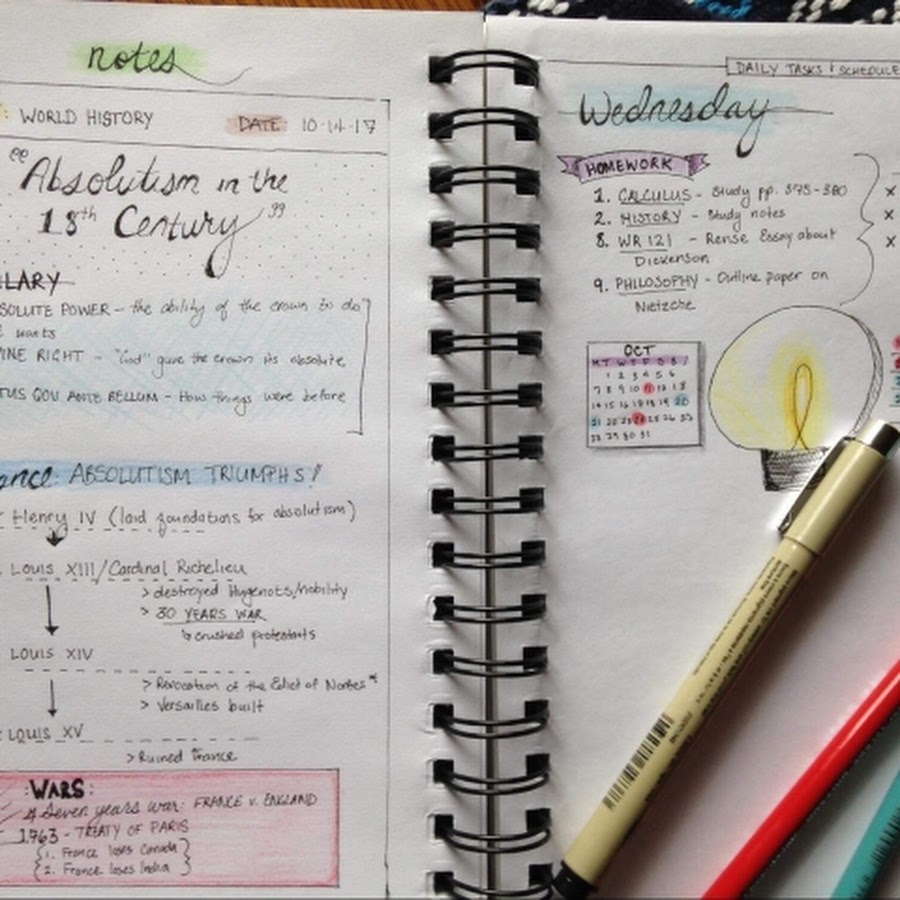 notes
WORLD HISTORY DATE: 10-14-17
"Absolutism in the
18th Century"
LARY
SOLUTE POWER - the ability of the crown to do
wants
INE RIGHT - "God" gave the crown its absolute
TUS QOU ANTE BELLUM - How things were before
ance: ABSOLUTISM TRIUMPHS!
Henry IV (laid foundations for absolutism)
LOUIS XIII/Cardinal Richelieu
> destroyed Hugenots/nobility
> 30 YEARS WAR
↳ crushed protestants
LOUIS XIV
> Revocation of the Edict of Nantes*
> Versailles built
LOUIS XV
> Ruined France
:WARS:
Seven years war: FRANCE v. ENGLAND
1763 - TREATY OF PARIS
1. France loses Canada
2. France loses India
DAILY TASKS & SCHEDULE
Wednesday
HOMEWORK
1. CALCULUS - Study pp. 375-380
2. HISTORY - Study notes
8. WR 121 - Revise Essay about
Dickenson
9. PHILOSOPHY - Outline paper on
Nietzche
x
x
x
OCT
M T W T F S S
1 2 3 4 5 6
7 8 9 10 11 12 13
14 15 16 17 18 19 20
21 22 23 24 25 26
29 30 31